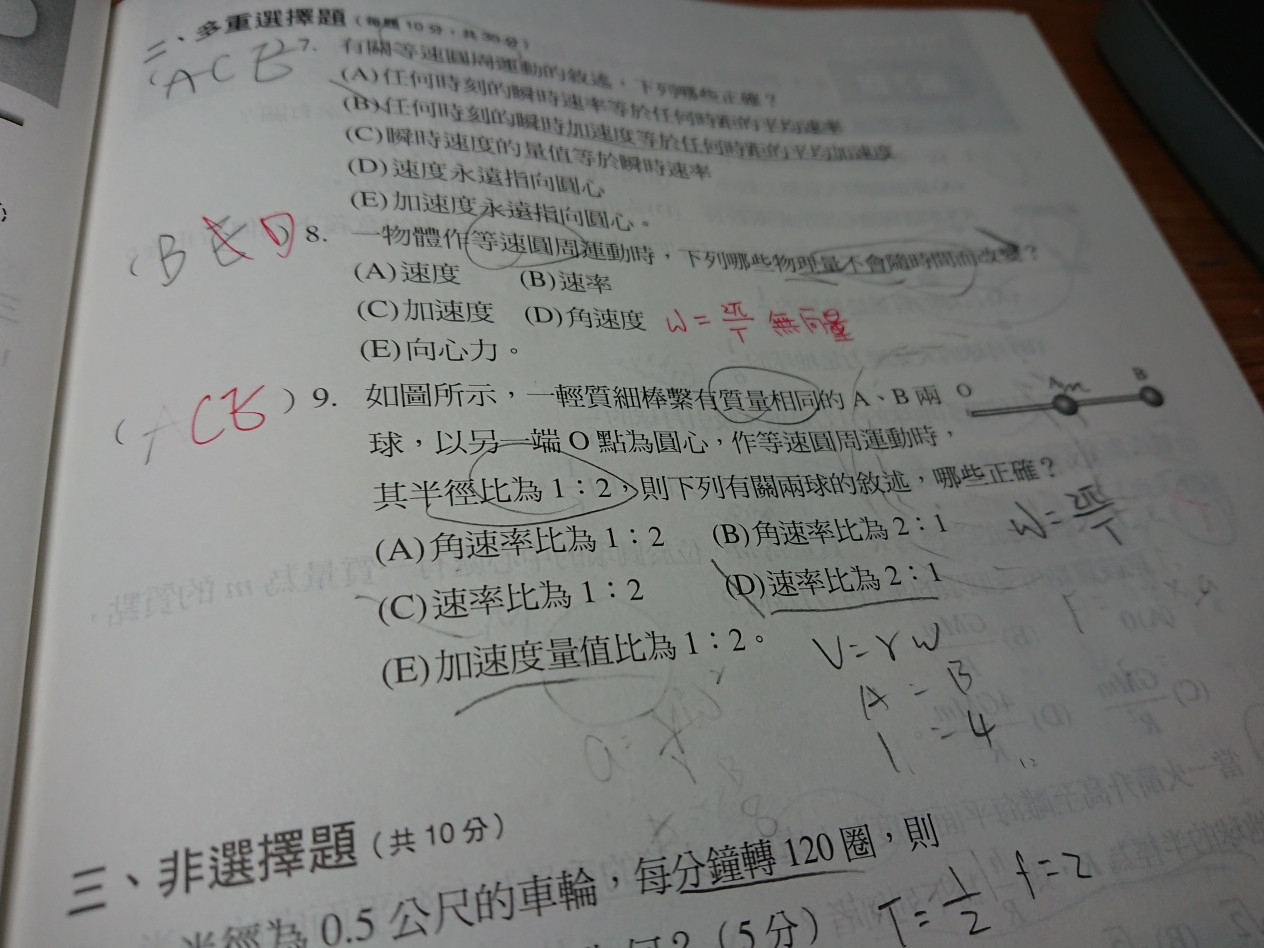 二、多重選擇題（每題 10 分，共 30 分）
(ACE) 7. 有關等速圓周運動的敘述，下列哪些正確？
(A)任何時刻的瞬時速率等於任何時距的平均速率
(B)任何時刻的瞬時加速度等於任何時距的平均加速度
(C)瞬時速度的量值等於瞬時速率
(D)速度永遠指向圓心
(E)加速度永遠指向圓心。
(BED) 8. 一物體作等速圓周運動時，下列哪些物理量不會隨時間而改變？
(A)速度 (B)速率
(C)加速度 (D)角速度 W=2π/T 無向量
(E)向心力。
(CE) 9. 如圖所示，一輕質細棒繫有質量相同的 A、B 兩
球，以另一端 O 點為圓心，作等速圓周運動時，
其半徑比為 1：2，則下列有關兩球的敘述，哪些正確？
(A)角速率比為 1：2 (B)角速率比為 2：1
(C)速率比為 1：2 (D)速率比為 2：1
(E)加速度量值比為 1：2。
O A m B
W=2π/T
V=rW
A = B
1 = 4
三、非選擇題（共 10 分）
半徑為 0.5 公尺的車輪，每分鐘轉 120 圈，則
何？（5 分）
T=1/2 f=2